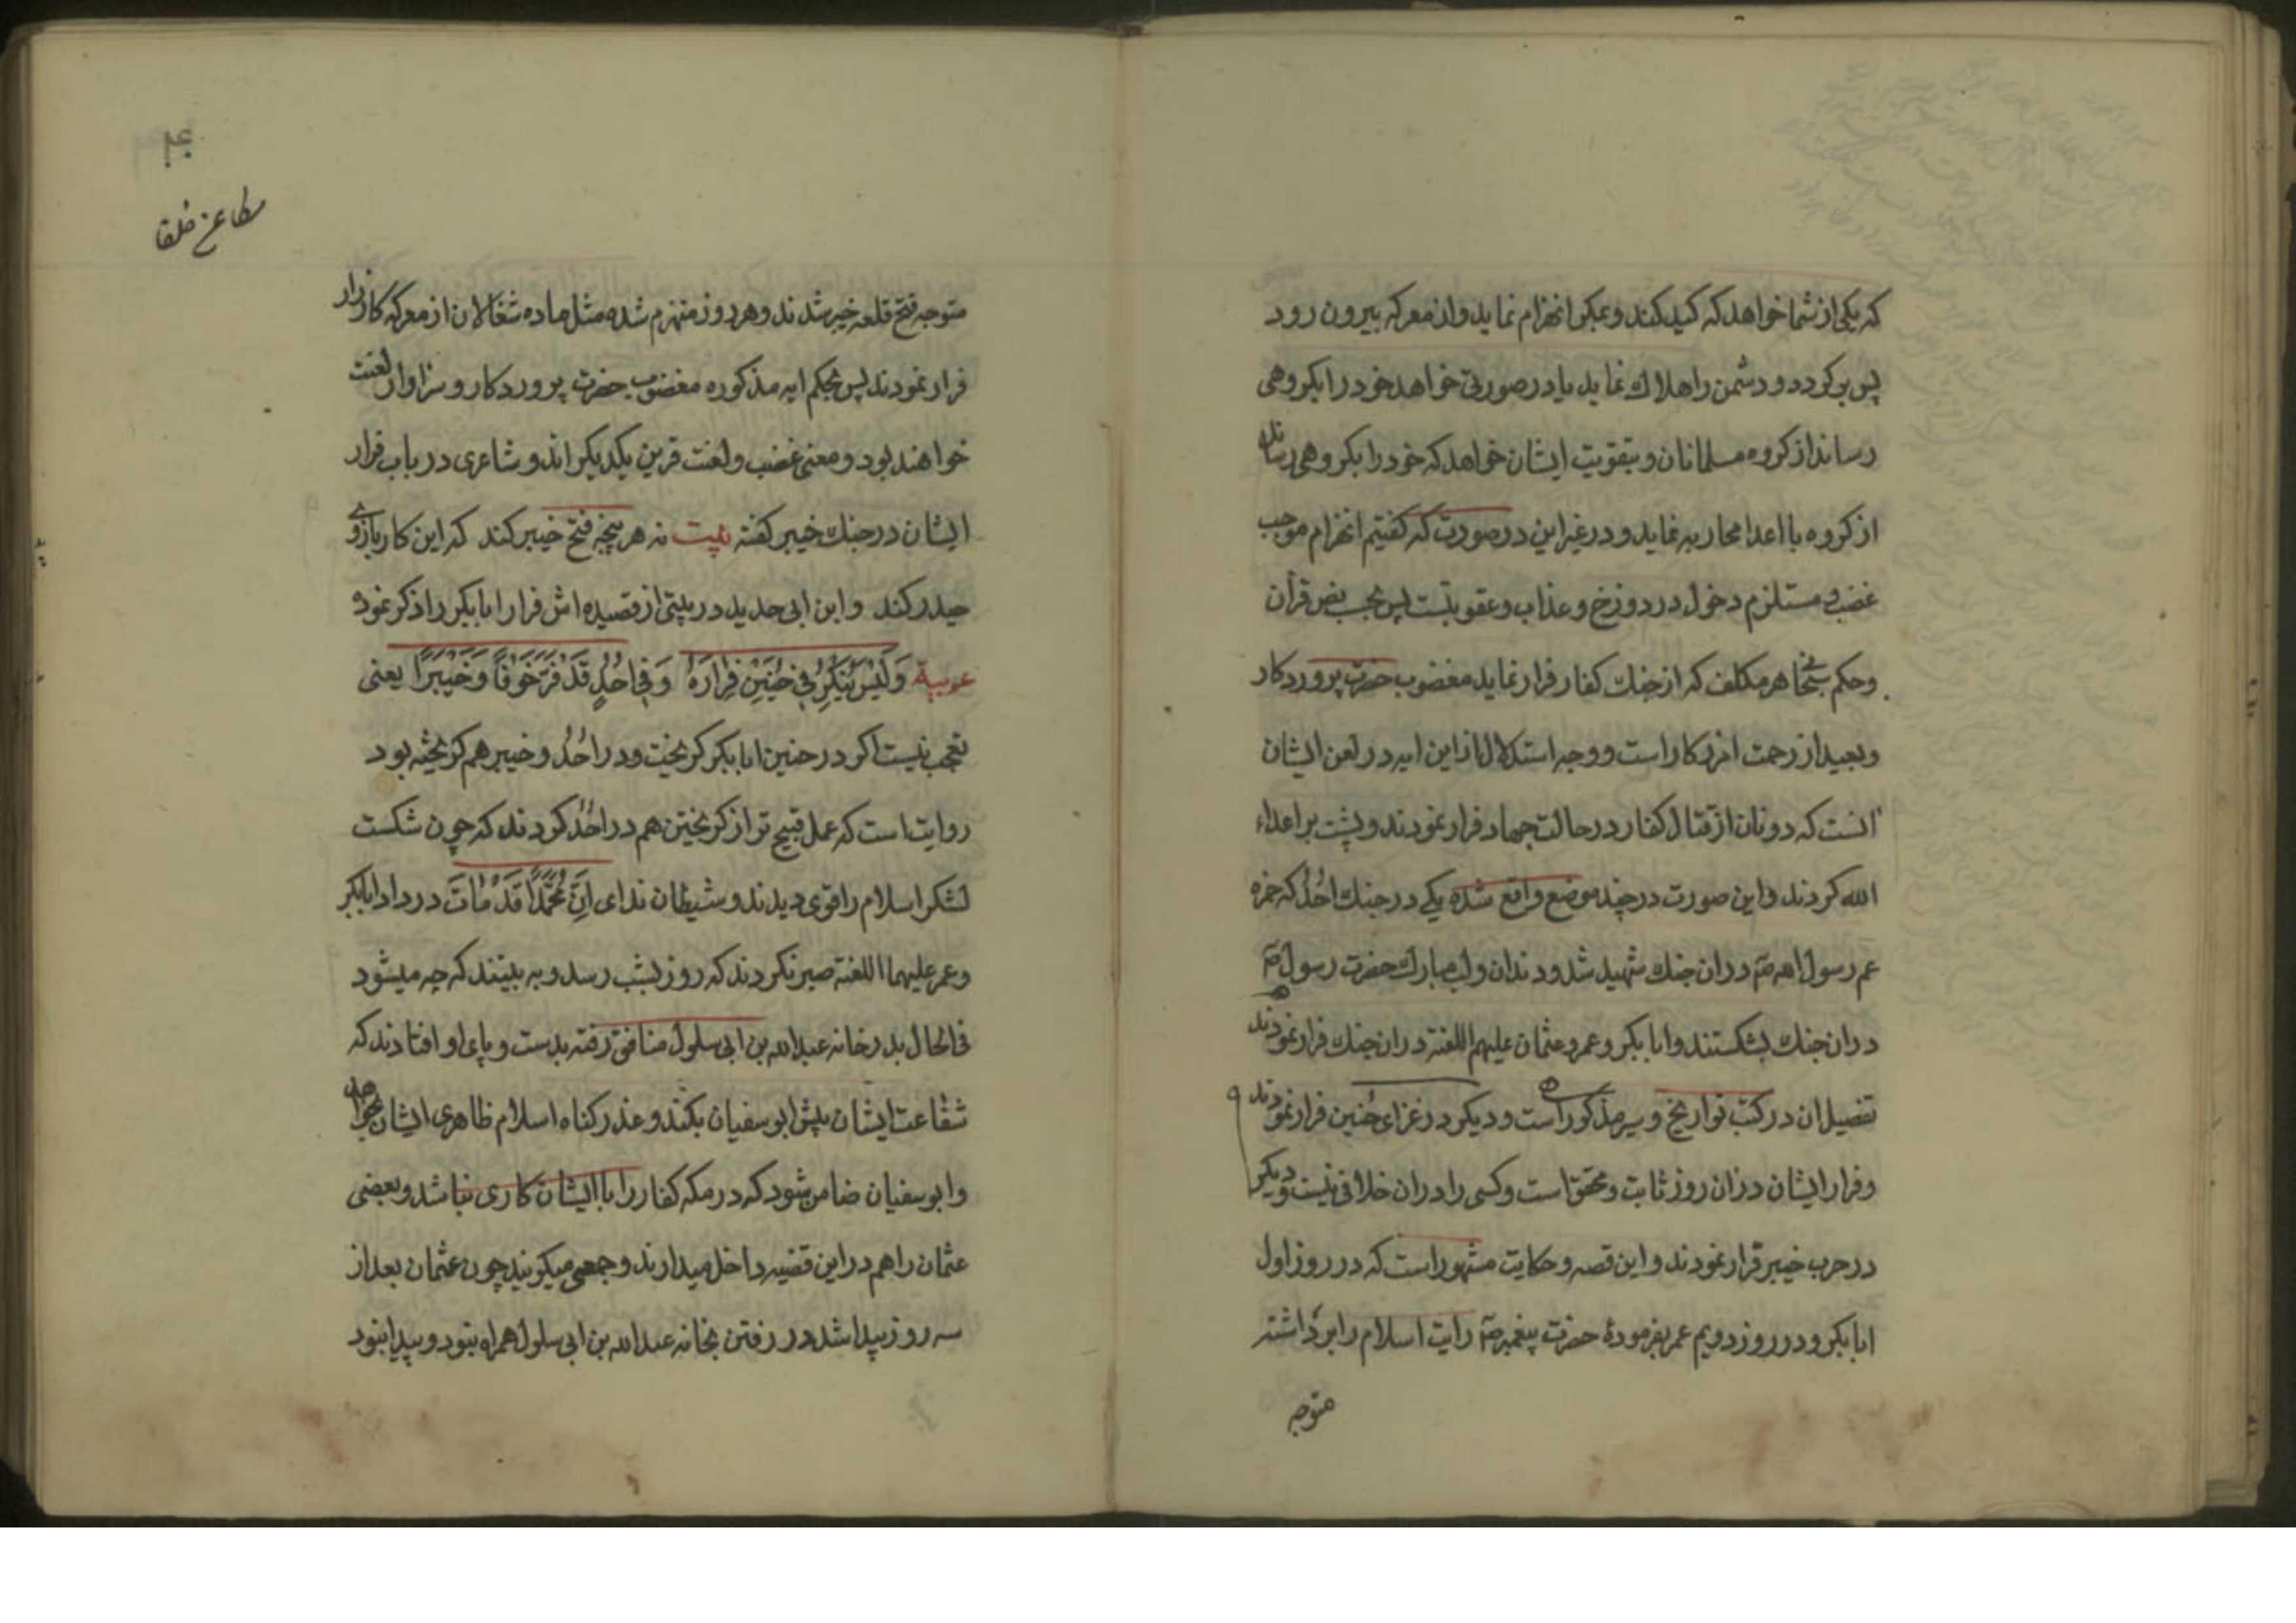 که یکی از شما خواهد که کید کند و بمکر انهزام نماید و از معرکه بیرون رود
پس بر کردد و دشمن را هلاک نماید یا در صورتی خواهد خود را بکروهی
رساند از کروه مسلمانان و بتقویت ایشان خواهد که خود را بکروهی رساند
از کروه با اعدا محاربه نماید و در غیر این در صورت که کفتیم انهزام موجب
غضب و مستلزم دخول در دوزخ و عذاب و عقوبتست پس بحسب نص قرآن
و حکم سبحا هر مکلف که از جنک کفار فرار نماید مغضوب حضرت پروردکار
و بعید از رحمت افریدکار است و وجه استدلال از این ایه در لعن ایشان
انست که دونان از قتال کفار در حالت جهاد فرار نمودند و پشت بر اعداء
الله کردند و این صورت در چند موضع واقع شده یکی در جنک احُد که حمزه
عم رسول الله صم در ان جنک شهید شد و دندان و لب مبارک حضرت رسول صم
در ان جنک بشکستند و ابابکر و عمر و عثمان علیهم اللعنة در ان جنک فرار نمودند
تفصیل ان در کتب تواریخ و سیر مذکور است و دیکر در غزای حُنین فرار نمودند
و فرار ایشان در ان روز ثابت و محقق است و کسی را در ان خلافی نیست و دیکر
در حرب خیبر فرار نمودند و این قصه و حکایت مشهور است که در روز اول
ابابکر و در روز دویم عمر بفرمودۀ حضرت پیغمبر صم رایت اسلام را برداشته
متوجه
۴۰
متوجه فتح قلعه خیبر شدند و هر دو روز منهزم شده مثل ماده شغالان از معرکه کارزار
فرار نمودند پس بحکم ایه مذکوره مغضوب حضرت پروردکار و سزاوار لعنت
خواهند بود و معنی غضب و لعنت قرین یکدیکراند و شاعری در باب فرار
ایشان در جنک خیبر کفته بیت نه هر پنجه فتح خیبر کند که این کار بازوی
حیدر کند و ابن ابی حدید در بیتی از قصیده اش فرار ابابکر را ذکر نموده
عربیة وَلَیْسَ بِنُکْرٍ فِی حُنَیْنٍ فِرَارُهُ وَفِی اُحُدٍ قَدْ فَرَّ خَوْفًا وَخَیْبَرًا یعنی
تعجب نیست اکر در حنین ابابکر کریخت و در احُد و خیبر هم کریخته بود
روایت است که عمل قبیح تر از کریختن هم در احُد کردند که چون شکست
لشکر اسلام را قوی دیدند و شیطان ندای اِنَّ مُحَمَّدًا قَدْ مَاتَ در داد ابابکر
و عمر علیهما اللعنة صبر نکردند که روز بشب رسد و به بینند که چه میشود
فی الحال بدر خانه عبدالله بن ابی سلول منافق رفته بدست و پای او افتادند که
شفاعت ایشان پیش ابوسفیان بکند و عذر کناه اسلام ظاهری ایشان بخواهد
و ابوسفیان ضامن شود که در مکه کفار را با ایشان کاری نباشد و بعضی
عثمان را هم در این قضیه داخل میدارند و جمعی میکویند چون عثمان بعد از
سه روز پیدا شد در رفتن بخانه عبدالله بن ابی سلول همراه نبود و پیدا نبود